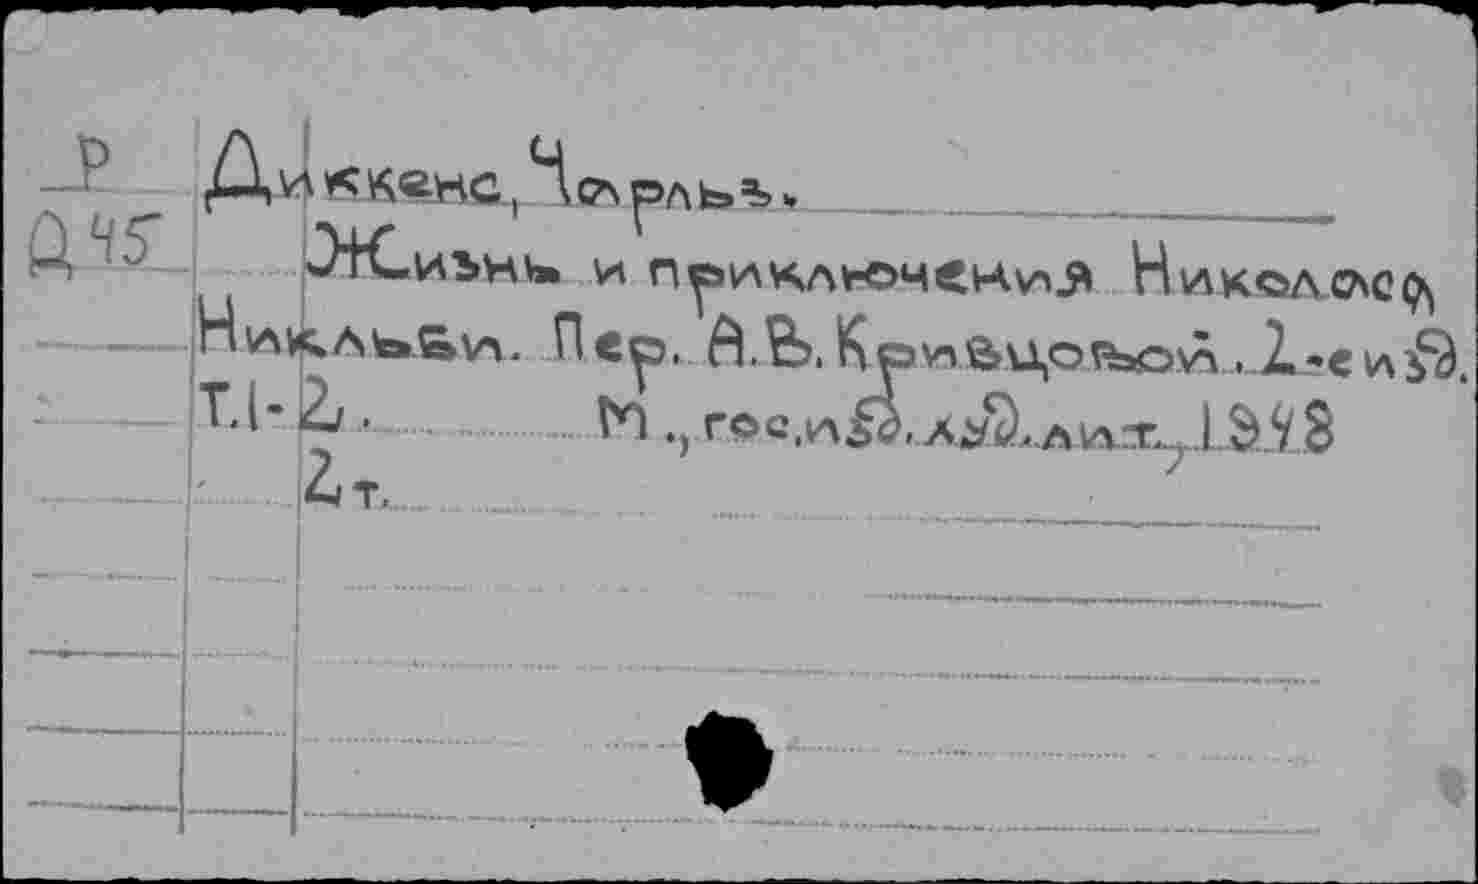 Р
Д45
Диккенс, Чарльз.
Жизнь и приключения Николаса
Никльби. Пер. А.В. Кривцовой. 2-е изд.
Т.1-2. М., гос.изд.худ.лит., 1948
2т.